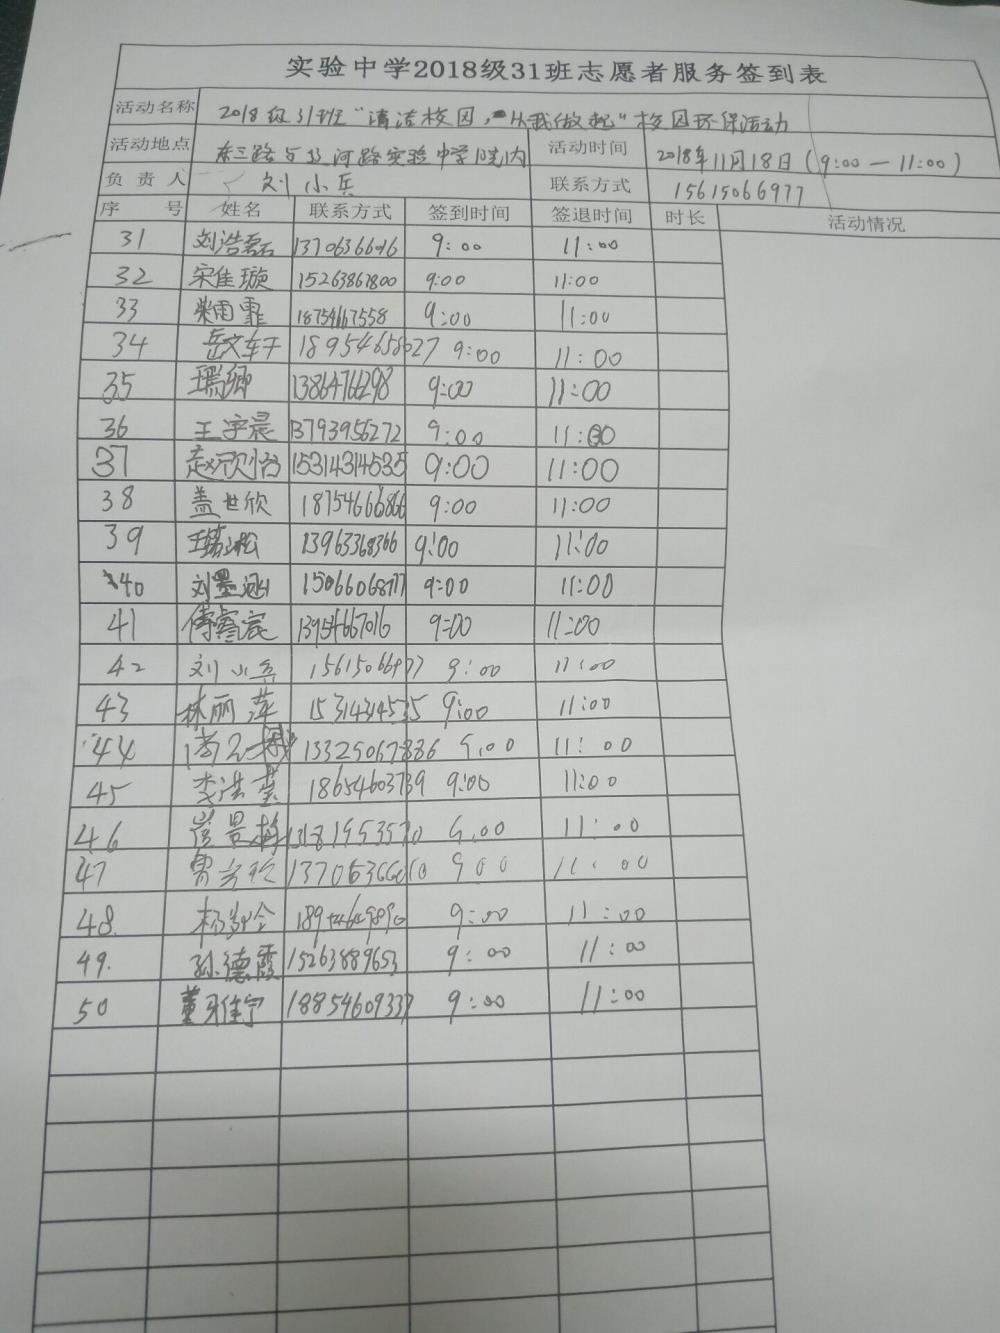 实验中学2018级31班志愿者服务签到表
活动名称 2018级31班"清洁校园,从我做起"校园环保活动
活动地点 东三路与 河路实验中学 内 活动时间 2018年11月18日(9:00—11:00)
负责人 刘小兵 联系方式 15615066977
序号 姓名 联系方式 签到时间 签退时间 时长 活动情况
31 刘浩磊 13706366016 9:00 11:00
32 宋佳璇 15263861800 9:00 11:00
33 雨霏 18754667558 9:00 11:00
34 岳文轩 18954658027 9:00 11:00
35 13864766298 9:00 11:00
36 王宇晨 13793956272 9:00 11:00
37 赵欣怡 15314314535 9:00 11:00
38 盖世欣 18754666866 9:00 11:00
39 13963368366 9:00 11:00
40 刘墨涵 15066068777 9:00 11:00
41 傅睿宸 13954667016 9:00 11:00
42 刘小兵 15615066977 9:00 11:00
43 林丽萍 15314314535 9:00 11:00
44 13325067836 9:00 11:00
45 李洪莹 18654603739 9:00 11:00
46 崔景梅 13181953570 9:00 11:00
47 13706366010 9:00 11:00
48. 9:00 11:00
49. 孙德霞 15263889653 9:00 11:00
50 董雅宁 18854609337 9:00 11:00